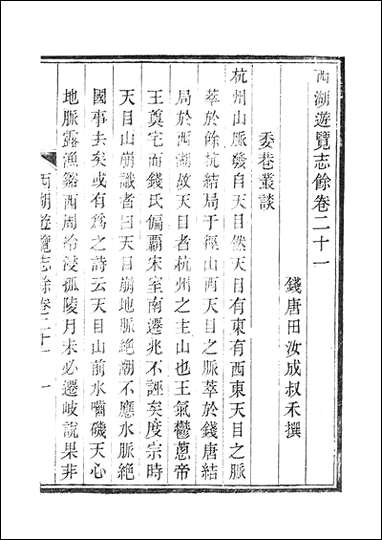 西湖遊覽志餘卷二十一
錢唐田汝成叔禾撰
委巷叢談
杭州山脈發自天目然天目有東有西東天目之脈
萃於餘杭結局于徑山西天目之脈萃於錢唐結
局於西湖故天目者杭州之主山也王氣鬱蔥帝
王奠宅而錢氏偏霸宋室南遷兆不誣矣度宗時
天目山崩識者曰天目崩地脈絕潮不應水脈絕
國事去矣或有為之詩云天目山前水嚙磯天心
地脈露漁谿西周冷浸孤陵月未必遷岐說果非
西湖遊覽志餘卷二十一 一